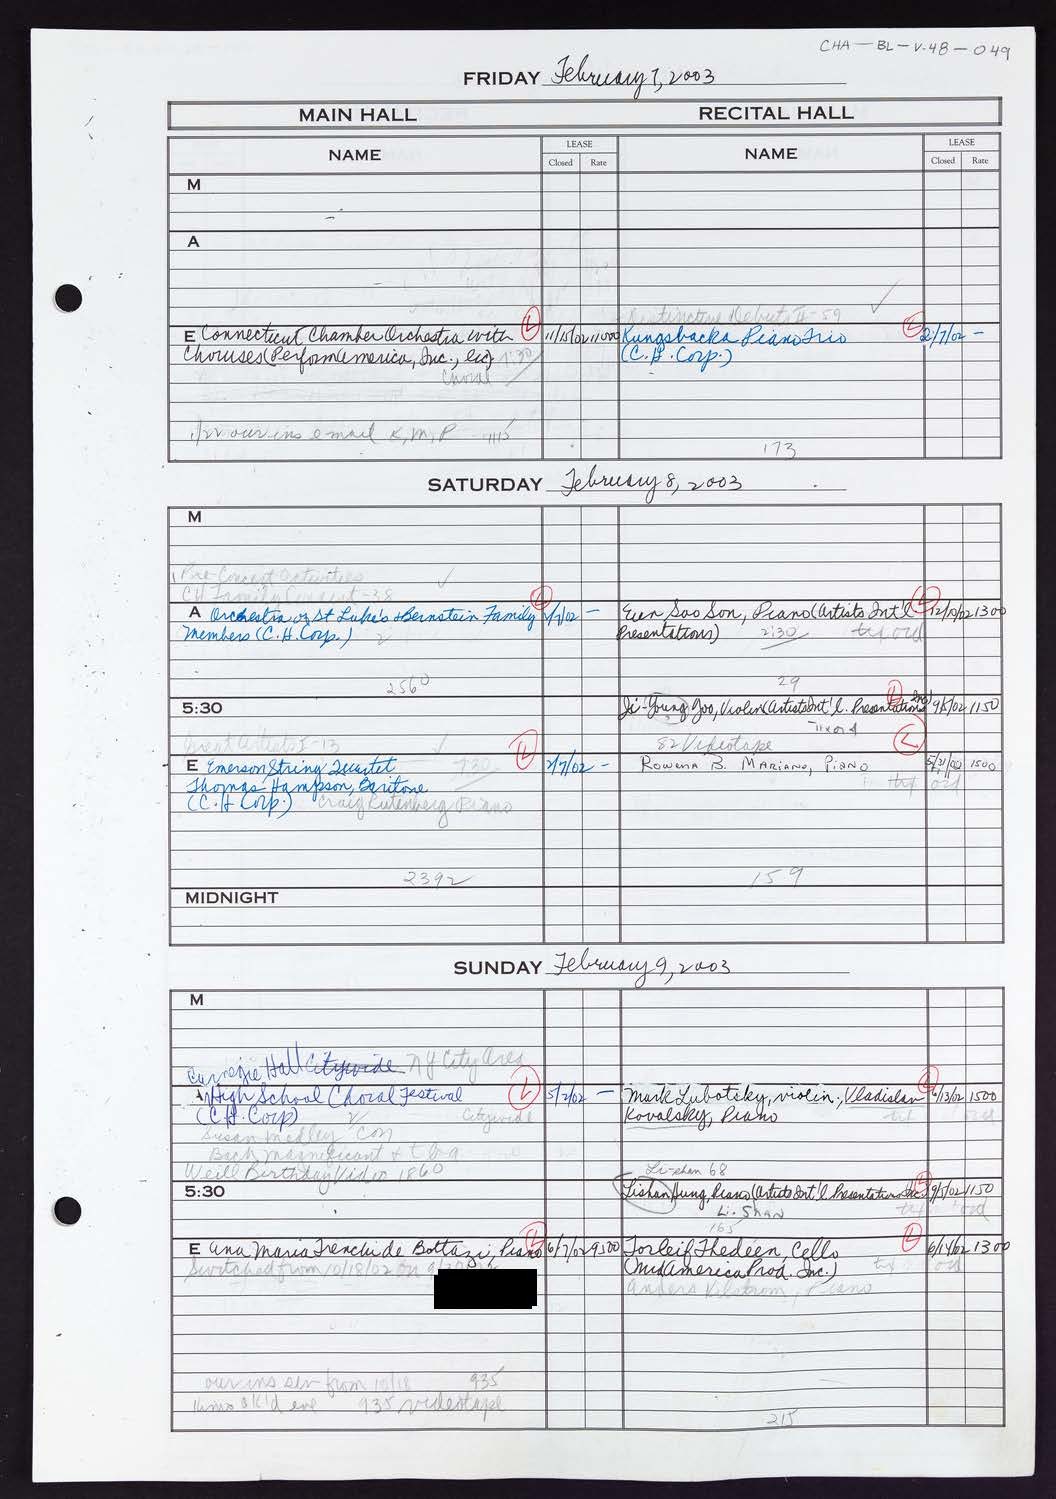 CHA-BL-V.48-049
FRIDAY February 7, 2003
MAIN HALL
RECITAL HALL
NAME
LEASE
Closed Rate
NAME
LEASE
Closed Rate
M
A
Distinctive Debuts II-59
E Connecticut Chamber Orchestra with L 11/15/02 11000
Choruses (Performamerica, Inc.,
Choral
Kungsbacka Piano Trio L 2/7/02 -
(C.H. Corp.)
1/22 our ins email K, M, P 1115
173
SATURDAY February 8, 2003
M
Pre-Concert activities
CH Family Concert-38
A Orchestra of St Luke's + Bernstein Family L -
Members (C.H. Corp.)
Eun Soo Son, Piano (Artists Int'l L 12/10/02 1300
Presentations) 2:30 tix ord
2560
29
5:30
Ji-Young Joo, Violin (Artists Int'l. Presentations Inc) L 9/5/02 1150
Tix ord
82 Videotape
Great Artists I-13
E Emerson String Quartet 7:30 L 2/7/02 -
Thomas Hampson, Baritone
(C.H. Corp.) Craig Rutenberg Piano
Rowena B. Mariano, Piano L 5/21/02 1500
tix ord
2392
159
MIDNIGHT
SUNDAY February 9, 2003
M
Carnegie Hall Citywide NY City Area
A High School Choral Festival L 5/2/02 -
(C.H. Corp) Citywide
Susan Medley Con
Bach Magnificant +
Weill Birthday Vid in 1860
Mark Lubotsky, violin; Vladislav L 6/13/02 1500
Kovalsky, Piano
Li-shan 68
5:30
Lishan Hung, Piano (Artists Int'l Presentations Inc) L 9/5/02 1150
Li-Shan tix ord
165
E Ana Maria Trenchi de Bottazi, Piano L 6/7/02 9500
Switched from 10/18/02 on
Torleif Thedeen, Cello L 6/14/02 1300
(MidAmerica Prod. Inc.) tix ord
Anders Kilstrom, Piano
our ins ser from 10/18 935
ok'd eve 935 videotape
215